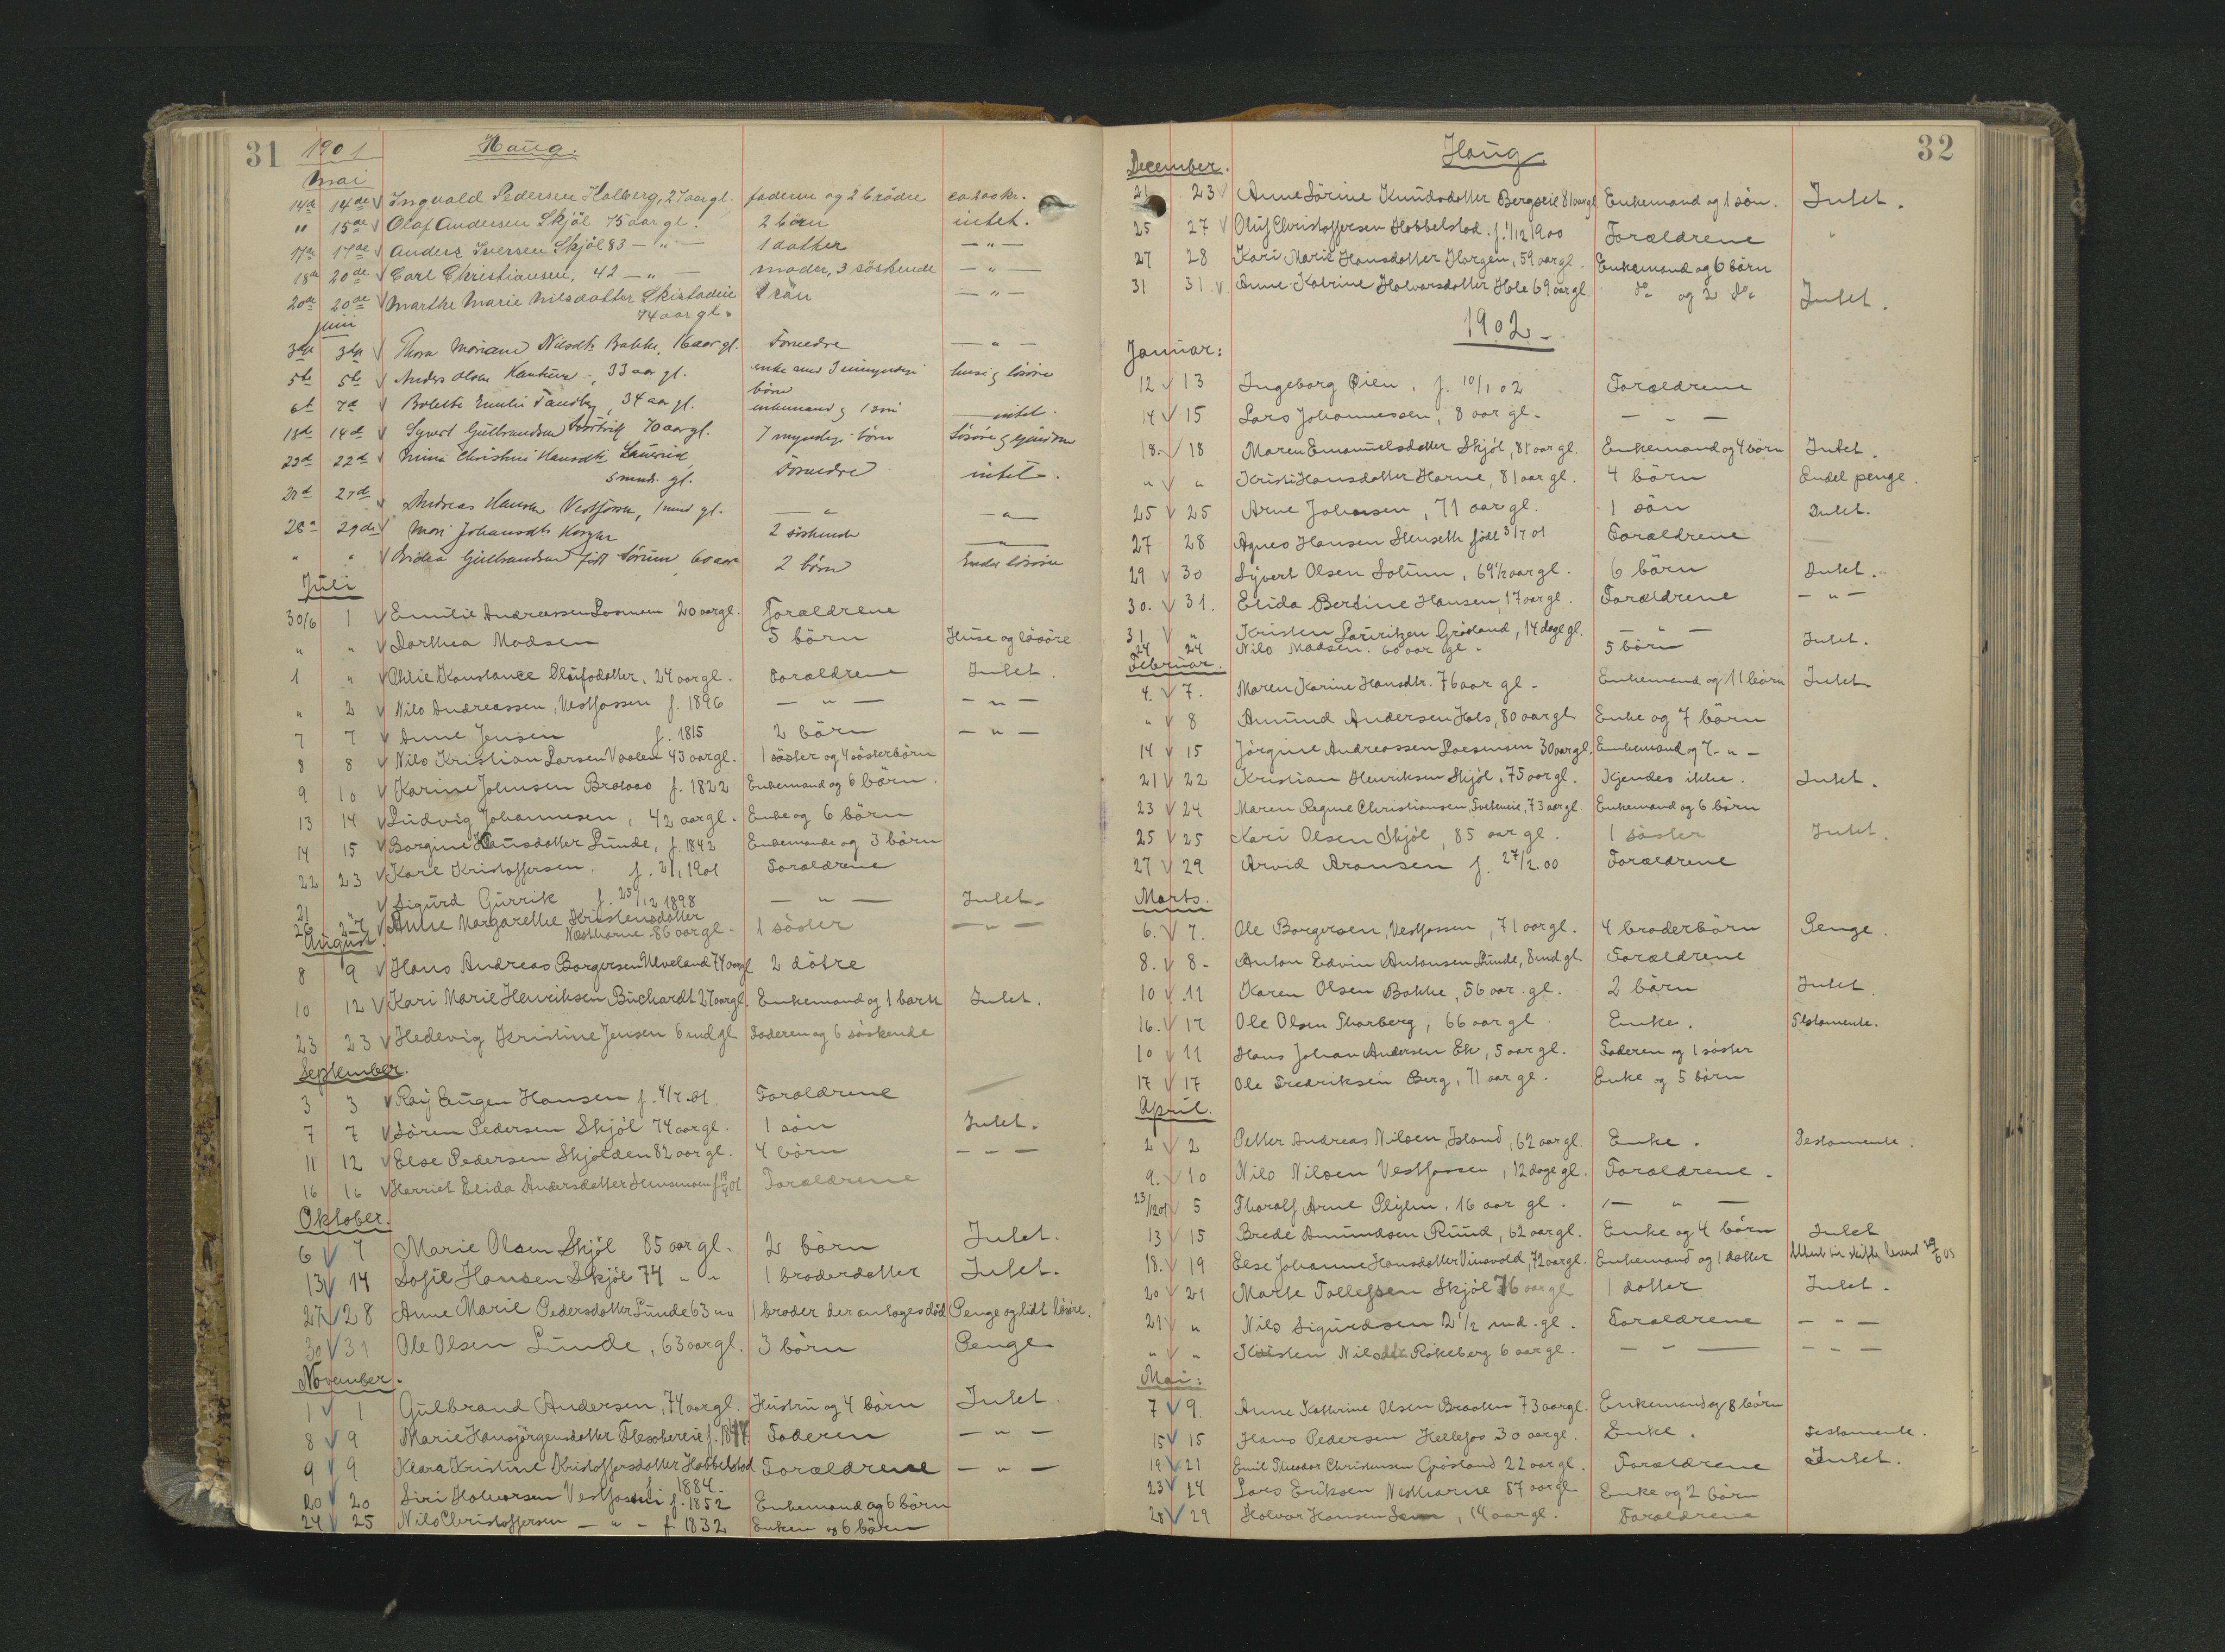 31 1901 Haug.
Mai
14de 14de Ingvald Pedersen Holberg, 27 aar gl. faderen og 2 brödre ca 200 kr.
" 15de Olaf Andersen Skjöl 75 aar gl. 2 börn intet.
17de 17de Anders Iversen Skjöl 83 — " — 1 datter — " —
18de 20de Carl Christiansen, 42 — " — moder, 3 söskende — " —
20de 20de Marthe Marie Nilsdatter 1 sön — " —
74 aar gl.
Juni
3die 3die Thora Mariane Nilsdtr. Bakke, 16 aar gl. Forældre — " —
5te 5te Anders Olsen 33 aar gl. enke med umyndige hus og lösöre
börn
6te 7de Bolette Emilie Tandberg, 34 aar gl. enkemand og 1 sön intet.
13de 14de Syvert Gulbrandsen 70 aar gl. 7 myndige börn Lösöre og eiendom
22de Christine Hansdtr.
5 mnd. gl. Forældre intet.
27de Andreas Hansen Vestfossen, 1 mnd gl. — " — — " —
28de 29de Mari Johansdtr. 2 söskende — " —
" " Gulbrandsen födt Sörum, 60 aar 2 börn Endel lösöre
Juli
30/6 1 Emilie Andreassen Losmoen 20 aar gl. Forældrene
" " Dorthea Madsen 5 börn Huse og lösöre
1 " Othlie Konstance Olufsdatter, 24 aar gl. Forældrene Intet.
" 2 Nils Andreassen, Vestfossen f. 1896 — " — — " —
7 7 Anne Jensen f. 1815 2 börn — " —
8 8 Nils Kristian Larsen Vaalen 43 aar gl. 1 söster og 4 sösterbörn
9 10 Karine Johnsen Brataas f. 1822 Enkemand og 6 börn.
13 14 Ludvig Johannesen, 42 aar gl. Enke og 6 börn
14 15 Borgine Hansdatter Lunde, f. 1842 Enkemand og 3 börn
22 23 Karl Kristoffersen, f. 3/1 1901 Forældrene
21 " Sigurd Gurrik f. 25/12 1898 — " — Intet.
26 27 Anne Margarethe Kristensdatter
Næstharne 86 aar gl. 1 söster — " —
August.
8 9 Hans Andreas Borgersen Ulveland 74 aar gl 2 dötre
10 12 Kari Marie Henriksen Buchardt 27 aar gl. Enkemand og 1 barn Intet.
23 23 Hedevig Kristine Jensen 6 md gl Faderen og 6 söskende
September.
3 3 Roy Eugen Hansen f. 4/7.01. Forældrene
7 7 Sören Pedersen Skjöl 74 aar gl. 1 sön Intet.
11 12 Else Pedersen Skjölden 82 aar gl. 4 börn — " —
16 16 Harriet Elida Andersdatter Forældrene
Oktober.
6 7 Marie Olsen Skjöl 85 aar gl. 2 börn Intet.
13 14 Sofie Hansen Skjöl 74 " " 1 broderdatter Intet.
27 28 Anne Marie Pedersdatter Lunde 63 " " 1 broder der antages död Penge og lidt lösöre.
30 31 Ole Olsen Lunde, 63 aar gl. 3 börn Penge
November.
1 1 Gulbrand Andersen, 74 aar gl. Hustru og 4 börn Intet.
8 9 Marie Hansjörgensdatter Flesakereie Faderen — " —
9 9 Klara Kristine Kristoffersdatter Hobbelstad Forældrene — " —
f. 1884.
20 20 Siri Halvorsen Vestfossen f. 1852 Enkemand og 6 börn
24 25 Nils Christoffersen — " — f 1832 Enken og 6 börn
Haug 32
December.
21 23 Anne Sörine Knudsdatter Bergseie 81 aar gl Enkemand og 1 sön. Intet.
25 27 Oluf Christoffersen Hobbelstad. f. 1/12 1900 Forældrene "
27 28 Kari Marie Hansdatter Horgen, 59 aar gl. Enkemand og 6 börn
31 31 Anne Katrine Halvorsdatter Hole 69 aar gl. do og 2 do Intet.
1902
Januar:
12 13 Ingeborg Öien, f. 10/1 02 Forældrene
14 15 Lars Johannessen, 8 aar gl. — " —
18. 18 Maren Emanuelsdatter Skjöl, 81 aar gl. Enkemand og 4 börn Intet.
" " Kristi Hansdatter Harne, 81 aar gl. 4 börn Endel penge.
25 25 Arne Johnsen, 71 aar gl. 1 sön Intet.
27 28 Agnes Hansen Stenseth födt 3/7 01 Forældrene
29 30 Syvert Olsen Solum, 69½ aar gl. 6 börn Intet.
30. 31. Elida Berdine Hansen, 17 aar gl. Forældrene — " —
31 " Kristen Lauritzen Gröstand, 14 dage gl. — " —
24 24 Nils Madsen. 60 aar gl. 5 börn Intet.
Februar.
4. 7. Maren Karine Hansdtr. 76 aar gl. Enkemand og 11 börn Intet.
" 8 Amund Andersen Hals, 80 aar gl Enke og 7 börn
14 15 Jörgine Andreassen Losmoen 30 aar gl. Enkemand og 7 - " -
21 22 Kristian Henriksen Skjöl, 75 aar gl. Kjendes ikke. Intet.
23 24 Maren Regine Christiansen, 73 aar gl. Enkemand og 6 börn
25 25 Kari Olsen Skjöl, 85 aar gl. 1 söster Intet.
27 29 Arvid Aronsen f. 27/2.00 Forældrene
Marts.
6. 7. Ole Borgersen, Vestfossen, 71 aar gl. 4 broderbörn Penge.
8. 8. Anton Edvin Antonsen Lunde, 8 md gl. Forældrene
10 11 Karen Olsen Bakke, 56 aar gl. 2 börn Intet
16. 17 Ole Olsen Thorberg, 66 aar gl. Enke. Testamente.
10 11 Hans Johan Andersen Ek, 5 aar gl. Faderen og 1 söster
17 17 Ole Fredriksen Berg, 71 aar gl. Enke og 5 börn
April.
2 2 Petter Andreas Nilsen, Island, 62 aar gl. Enke. Testamente.
9. 10 Nils Nilsen Vestfossen, 12 dage gl. Forældrene.
23/12 01 5 Tharalf Arne Plylm, 16 aar gl. — " —
13 15 Brede Amundsen Ruud, 62 aar gl. Enke og 4 börn Intet
18. 19 Else Johanne Hansdatter Vinsvold, 72 aar gl. Enkemand og 1 datter
20 21 Marte Tollefsen Skjöl 76 aar gl 1 datter Intet.
21 " Nils Sigurdsen 2½ md. gl. Forældrene — " —
" " Kristen Rökeberg 6 aar gl. — " — — " —
Mai:
7 9. Anne Kathrine Olsen Braaten 73 aar gl. Enkemand og 8 börn
15 15 Hans Pedersen Hellefos 30 aar gl. Enke. Testamente.
19 21 Emil Theodor Christensen Gröstand 22 aar gl. Forældrene Intet.
23 24 Lars Eriksen Nestharne 57 aar gl Enke og 2 börn
28 29 Halvor Hansen, 14 aar gl. Forældrene